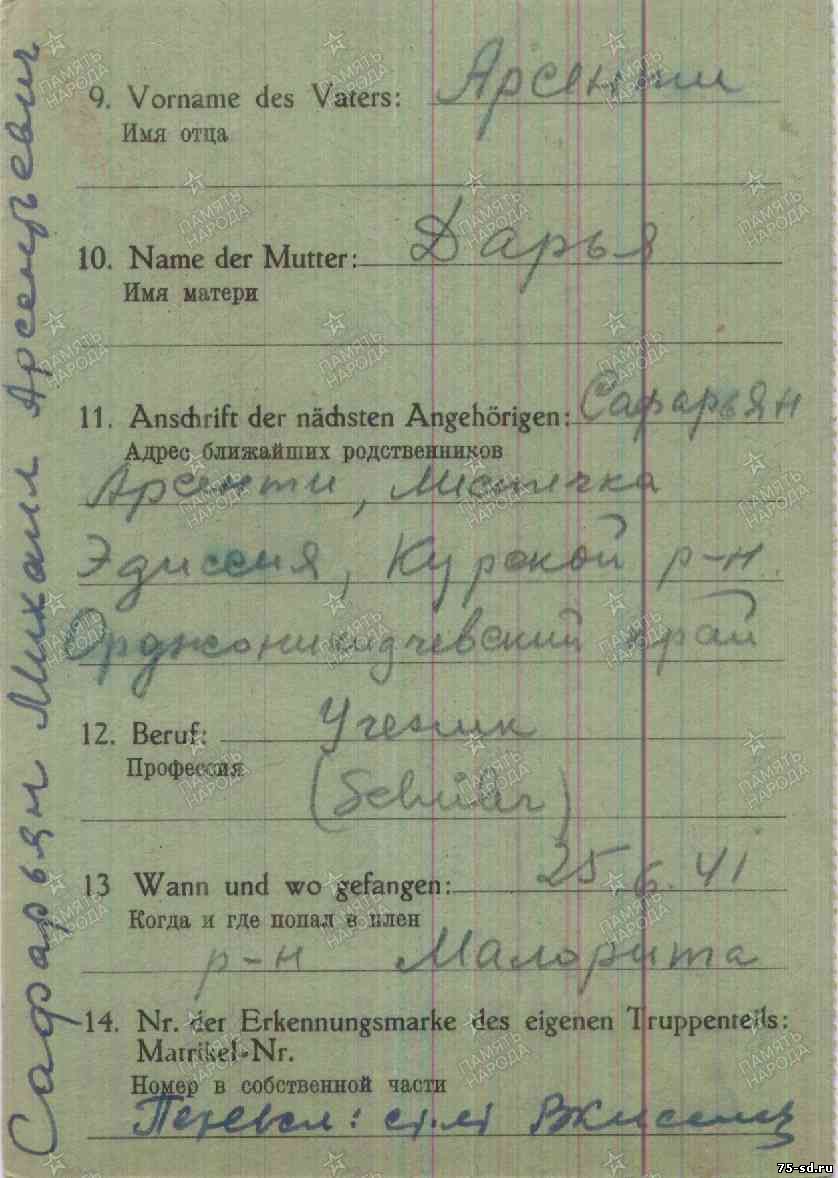 Сафарьян Михаил Арсентьевич
9. Vorname des Vaters: Арсенти
Имя отца
10. Name der Mutter: Дарья
Имя матери
11. Anschrift der nächsten Angehörigen: Сафарьян
Адрес ближайших родственников
Арсенти, Местечка
Эдиссия, Курской р-н.
Орджоникидчевский край
12. Beruf: Ученик
Профессия
(Schüler)
13 Wann und wo gefangen: 25.6.41
Когда и где попал в плен
р-н Малорита
14. Nr. der Erkennungsmarke des eigenen Truppenteils:
Matrikel-Nr.
Номер в собственной части
Перевел: ст. лт
ПАМЯТЬ НАРОДА
75-sd.ru